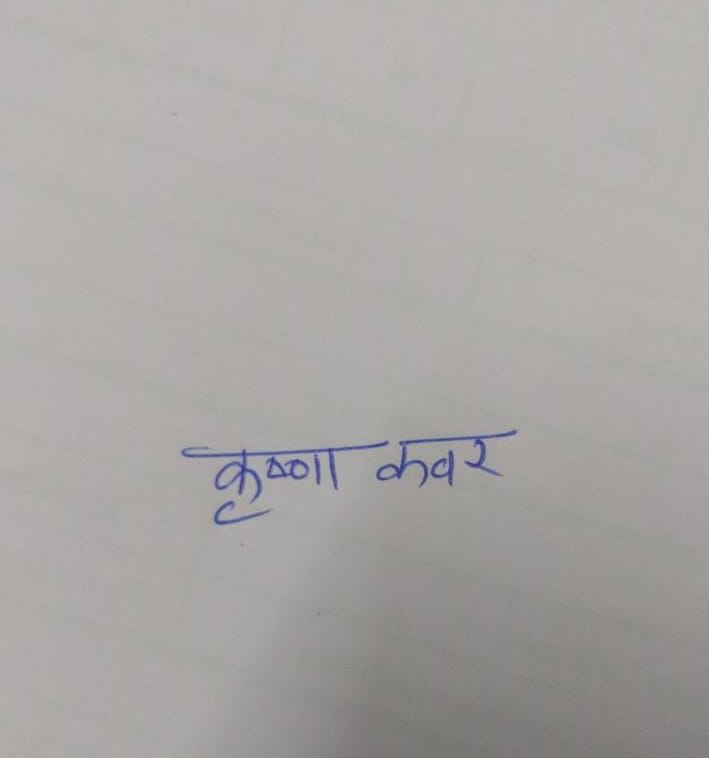 कृष्णा कवर